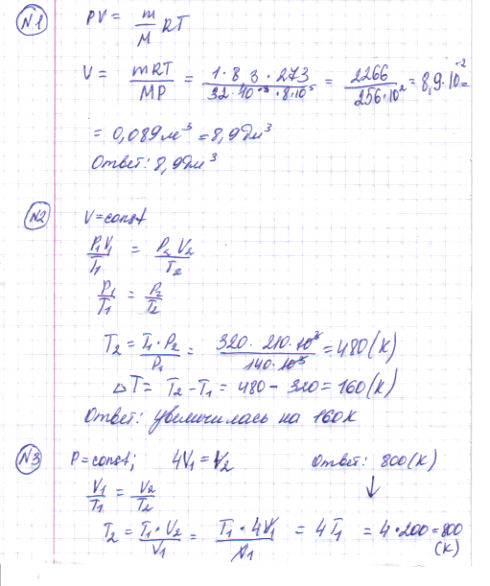 №1
PV = m/M RT
V = mRT/MP = 1·8,3·273/32·10⁻³·8·10⁵ = 2266/256·10² = 8,9·10⁻² =
= 0,089 м³ = 8,9 дм³
Ответ: 8,9 дм³
№2
V = const
P₁V₁/T₁ = P₂V₂/T₂
P₁/T₁ = P₂/T₂
T₂ = T₁·P₂/P₁ = 320·210·10³/140·10³ = 480 (К)
ΔT = T₂ - T₁ = 480 - 320 = 160 (К)
Ответ: увеличилась на 160К
№3
P = const; 4V₁ = V₂ Ответ: 800 (К)
V₁/T₁ = V₂/T₂ ↓
T₂ = T₁·V₂/V₁ = T₁·4V₁/V₁ = 4T₁ = 4·200 = 800
(К)